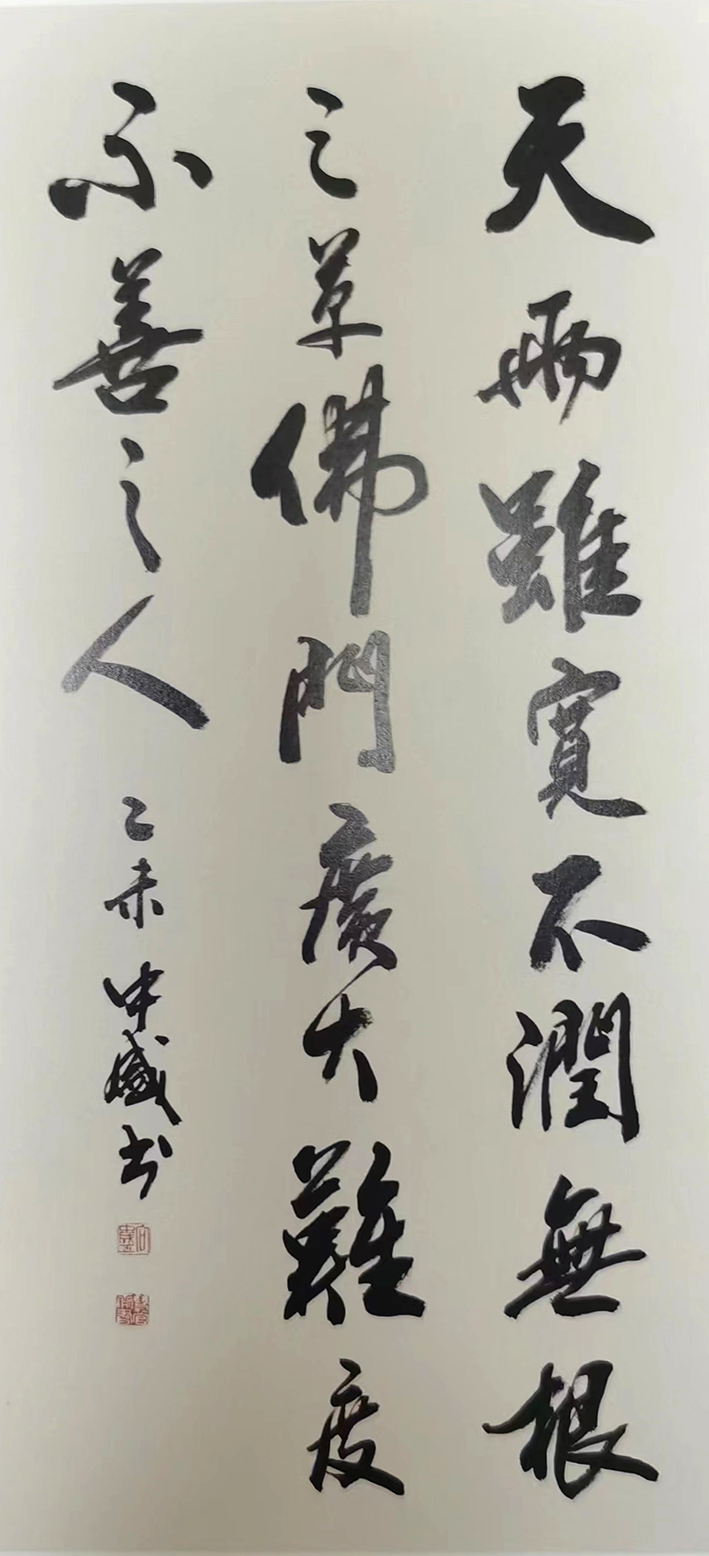 天雨雖寬不潤無根
之草佛門廣大難度
不善之人
乙未中盛書